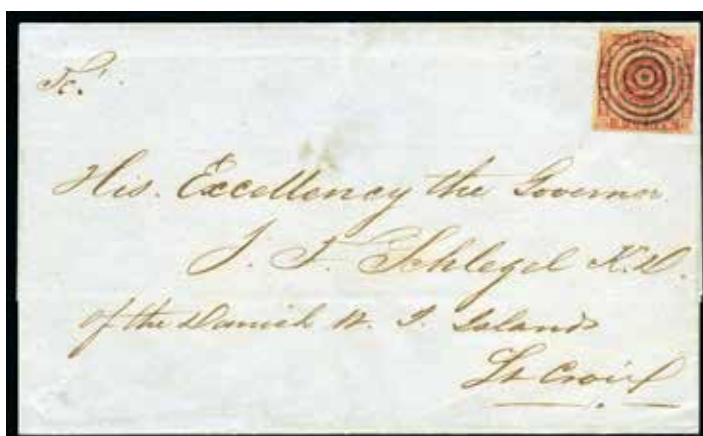 To.
His. Excellency the Governor
J. F. Schlegel K.D.
of the Danish W. I. Islands
St Croix